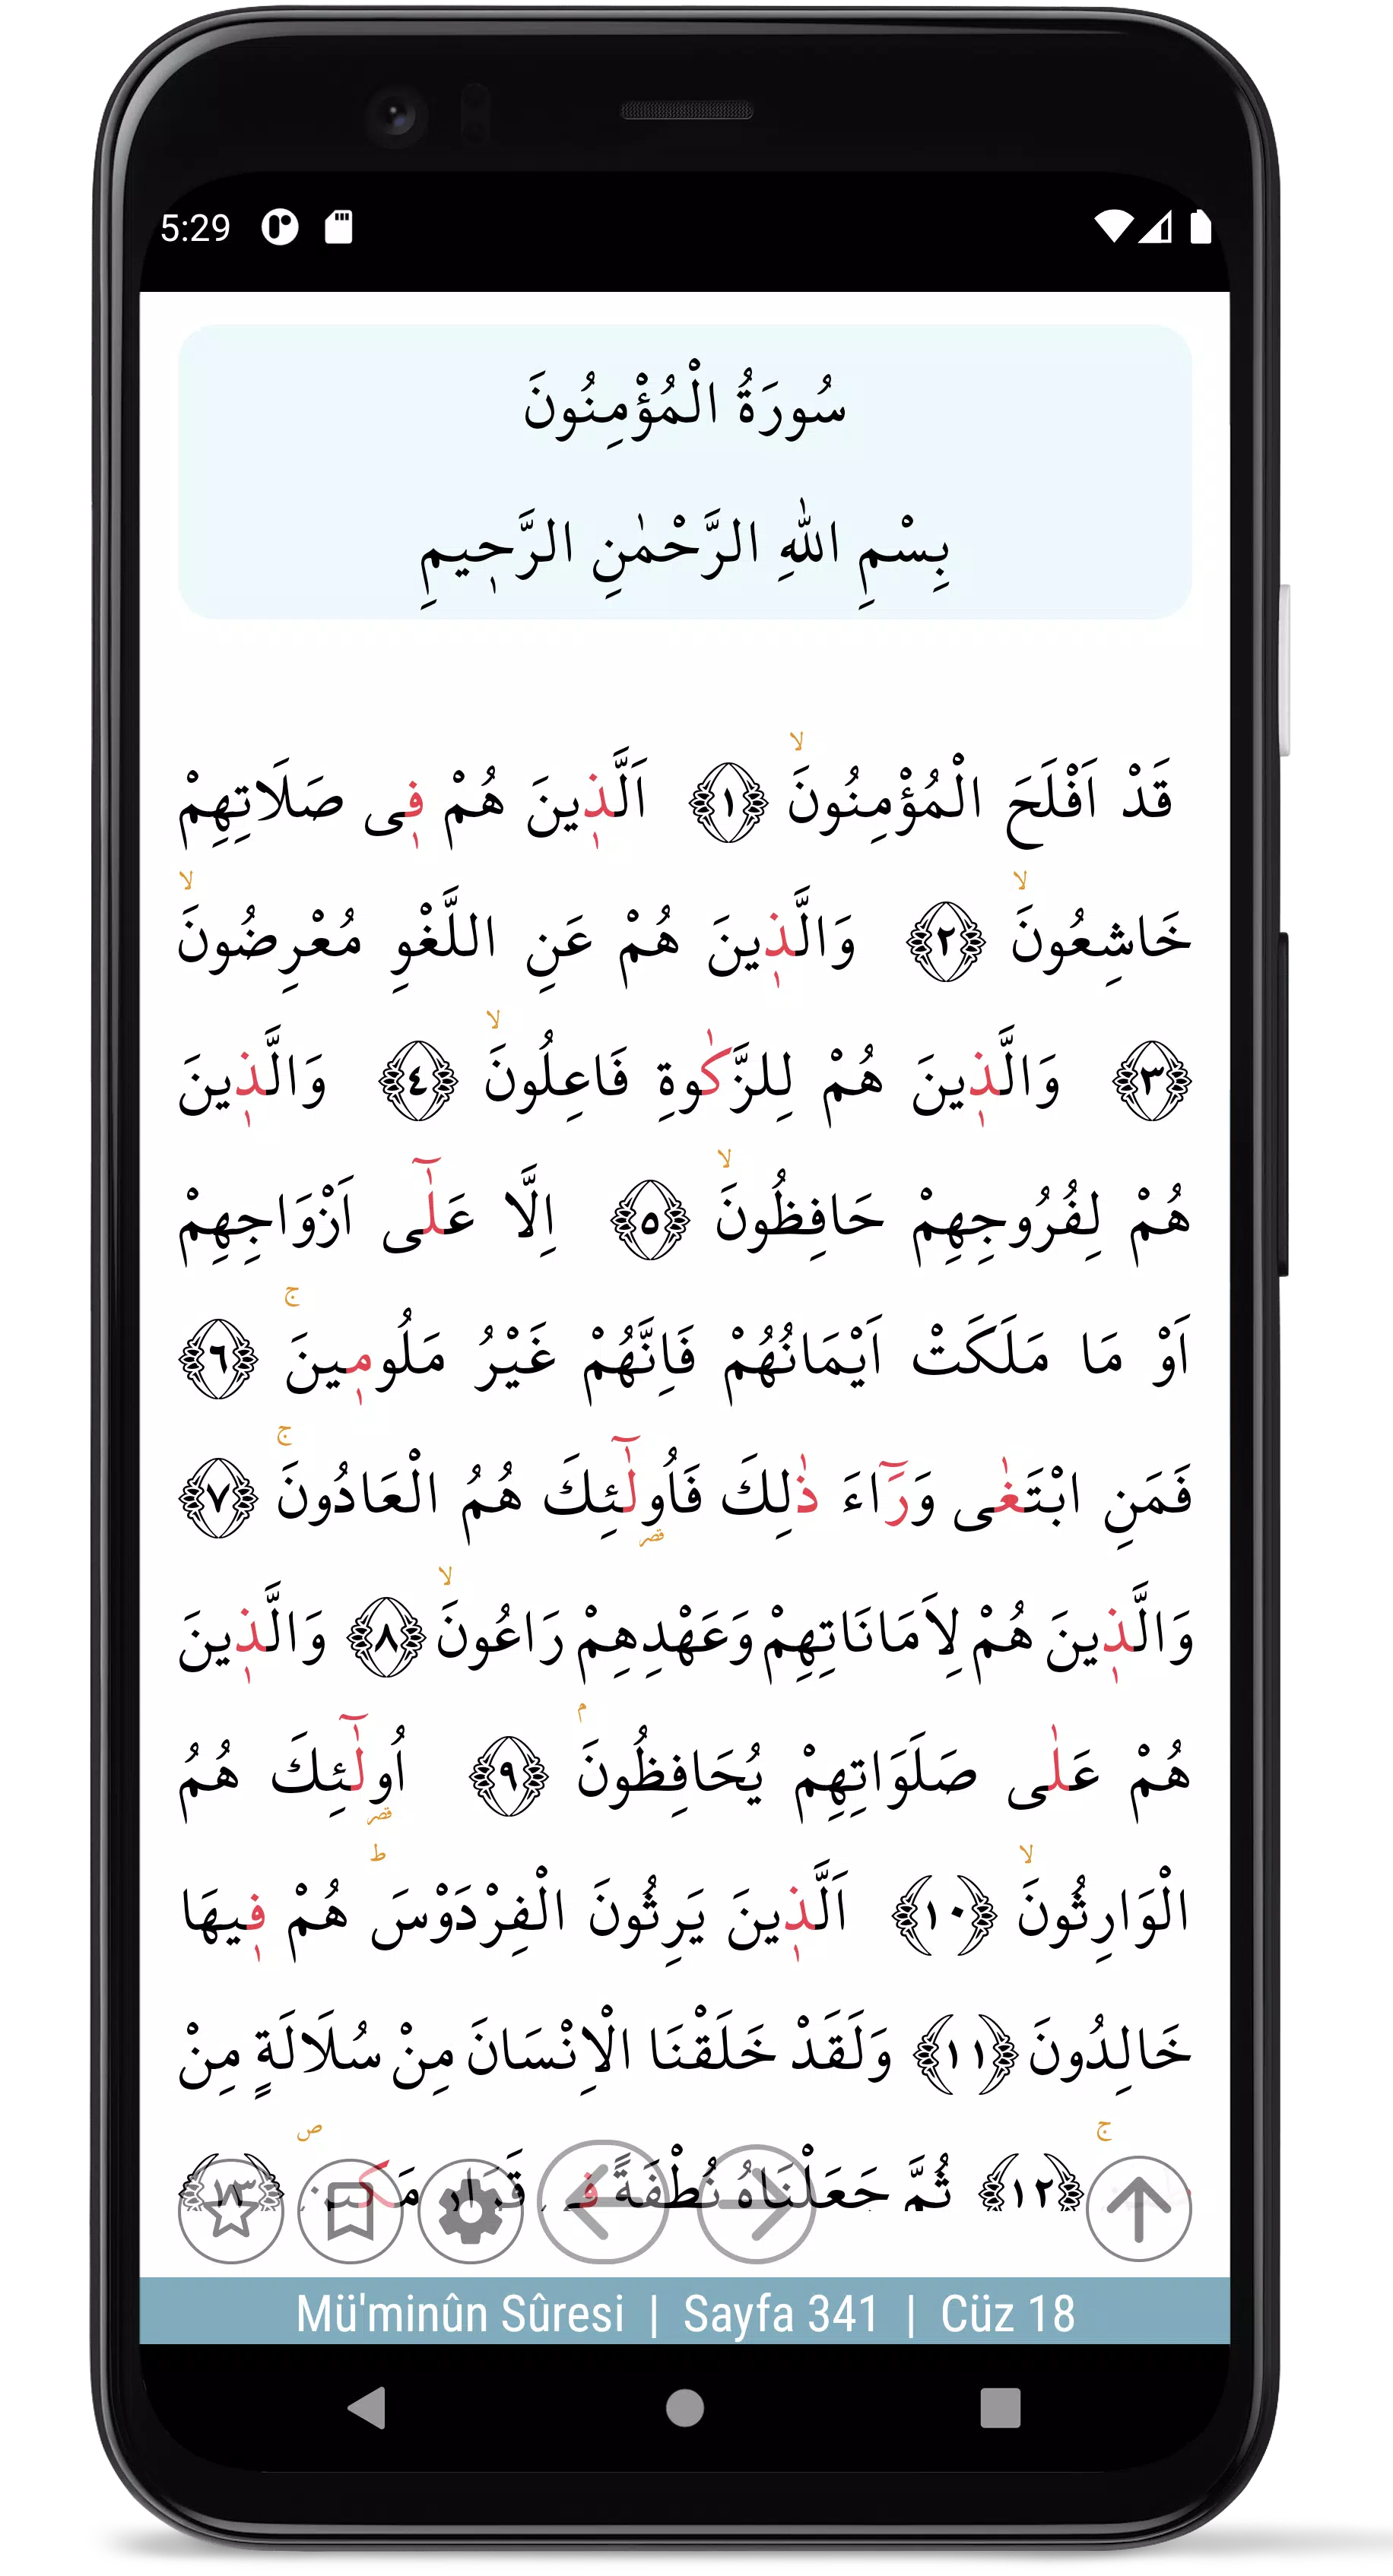 5:29
سُورَةُ الْمُؤْمِنُونَ
بِسْمِ اللهِ الرَّحْمٰنِ الرَّحٖيمِ
قَدْ اَفْلَحَ الْمُؤْمِنُونَۙ ﴿١﴾ اَلَّذٖينَ هُمْ فٖى صَلَاتِهِمْ
خَاشِعُونَۙ ﴿٢﴾ وَالَّذٖينَ هُمْ عَنِ اللَّغْوِ مُعْرِضُونَۙ
﴿٣﴾ وَالَّذٖينَ هُمْ لِلزَّكٰوةِ فَاعِلُونَۙ ﴿٤﴾ وَالَّذٖينَ
هُمْ لِفُرُوجِهِمْ حَافِظُونَۙ ﴿٥﴾ اِلَّا عَلٰٓى اَزْوَاجِهِمْ
اَوْ مَا مَلَكَتْ اَيْمَانُهُمْ فَاِنَّهُمْ غَيْرُ مَلُومٖينَۚ ﴿٦﴾
فَمَنِ ابْتَغٰى وَرَٓاءَ ذٰلِكَ فَاُو۬لٰٓئِكَ هُمُ الْعَادُونَۚ ﴿٧﴾
وَالَّذٖينَ هُمْ لِاَمَانَاتِهِمْ وَعَهْدِهِمْ رَاعُونَۙ ﴿٨﴾ وَالَّذٖينَ
هُمْ عَلٰى صَلَوَاتِهِمْ يُحَافِظُونَۘ ﴿٩﴾ اُو۬لٰٓئِكَ هُمُ
الْوَارِثُونَۙ ﴿١٠﴾ اَلَّذٖينَ يَرِثُونَ الْفِرْدَوْسَؕ هُمْ فٖيهَا
خَالِدُونَ ﴿١١﴾ وَلَقَدْ خَلَقْنَا الْاِنْسَانَ مِنْ سُلَالَةٍ مِنْ
﴿١٢﴾ ثُمَّ جَعَلْنَاهُ نُطْفَةً فٖى قَرَارٍ مَكٖينٍ ﴿١٣﴾
Mü'minûn Sûresi | Sayfa 341 | Cüz 18